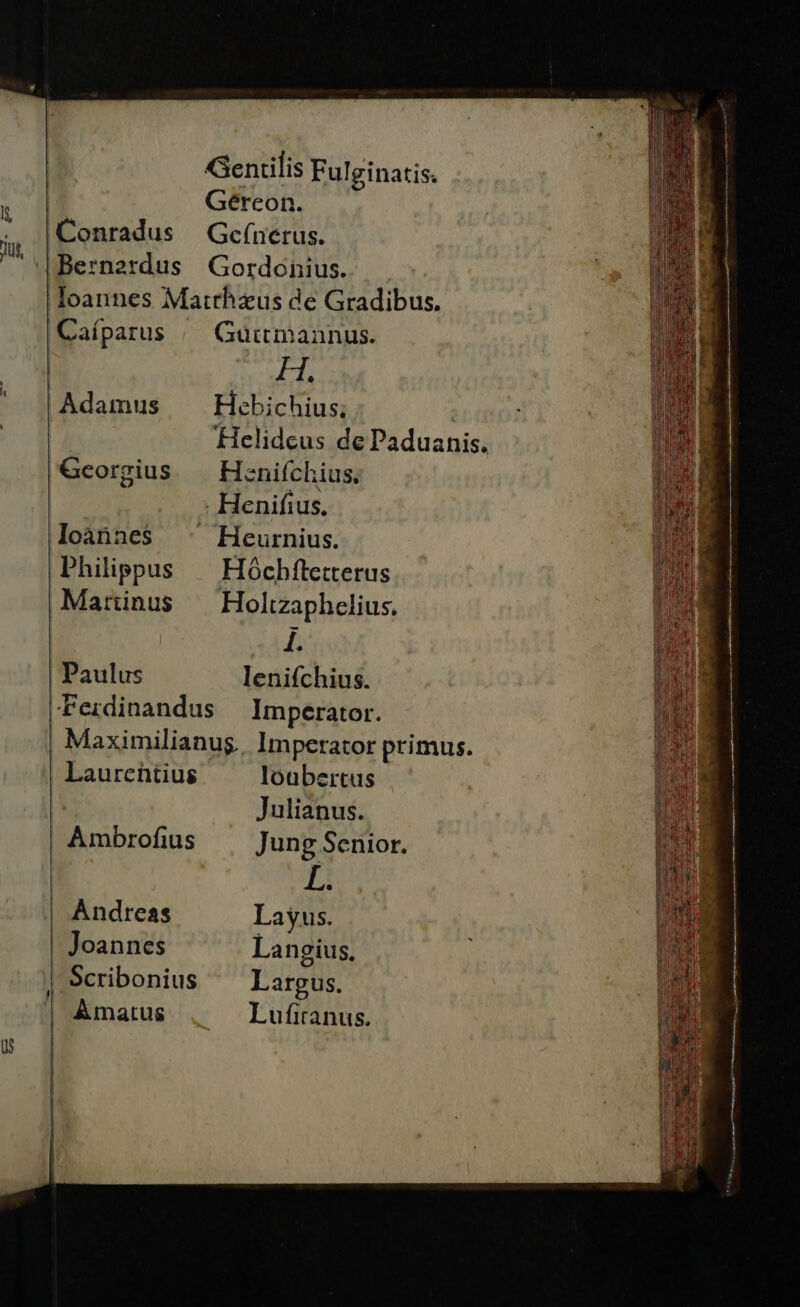 Gentilis Fulginatis.
Géreon.
Conradus Geſnerus.
Bernardus Gordonius.
Ioannes Matthæus de Gradibus.
Caſparus Guttmannus.
H.
Adamus Hebichius.
Helideus de Paduanis.
Georgius Heniſchius.
Heniſius.
Ioannes Heurnius.
Philippus Höchſtetterus
Martinus Holtzaphelius.
I.
Paulus Ieniſchius.
Ferdinandus Imperator.
Maximilianus Imperator primus.
Laurentius Ioubertus
Julianus.
Ambroſius Jung Senior.
L.
Andreas Layus.
Joannes Langius.
Scribonius Largus.
Amatus Luſitanus.